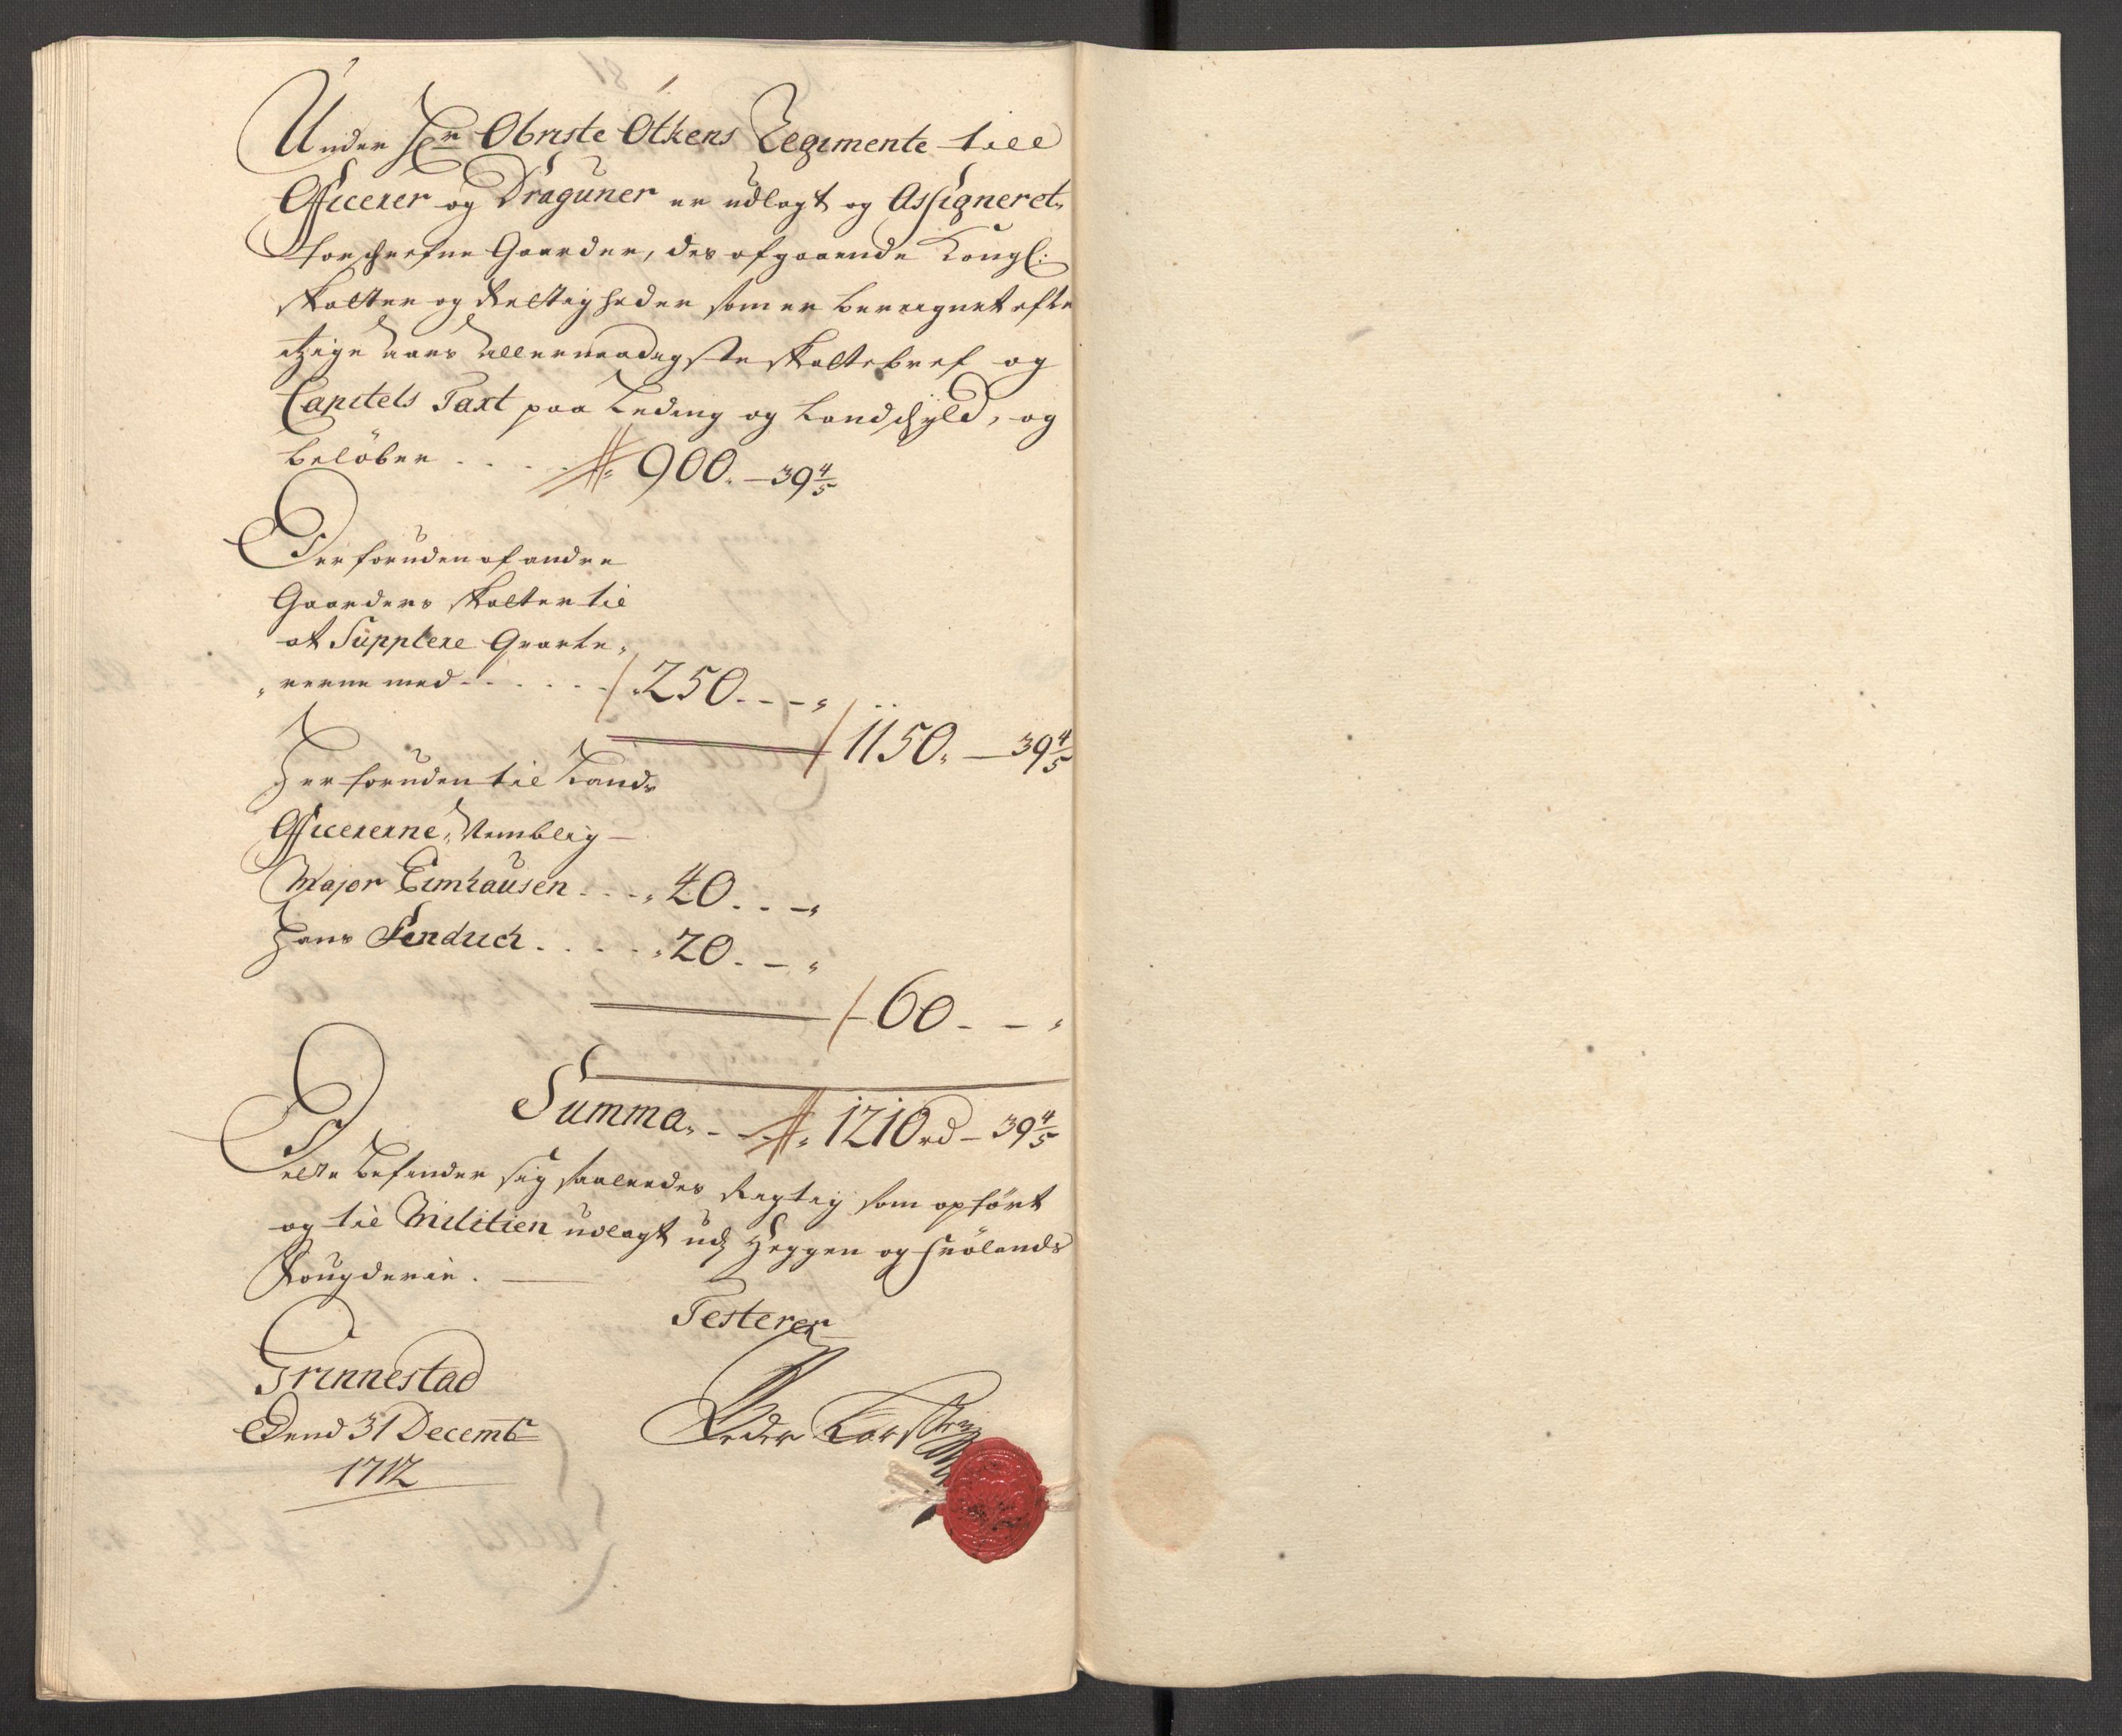 Under Hr Obriste Ötkens Regimente till
Officerer og Draguner er udlagt og Assigneret,
forschrefne Gaarder, des afgaaende Kongl:
skatter og Rettigheder som er bereignet effte
itzige aars allernaadigste skattebref og
Capitels Taxt paa Leding og Landschyld, og
beløber . . . . . 900. – 39 4/5
Der foruden af andre
Gaarders skatter til
at Supplere Qvarte,
„rerne med . . . . . 250. - - „
1150. – 39 4/5
Her foruden til Lands
Officererne, Nemblig –
Major Eimhausen . . . „ 40. . - „
Hans Fenduch . . . . „ 20. - „
60. - - „
Summa. . . 1210 rd – 39 4/5
Dette befinder sig saaledes Rigtig som opført
og til Militien udlagt udj Heggen og Frølands
Fougderie. —
Testerer
Grinnestad
Dend 31 Decembr
1712
Peder Karsten